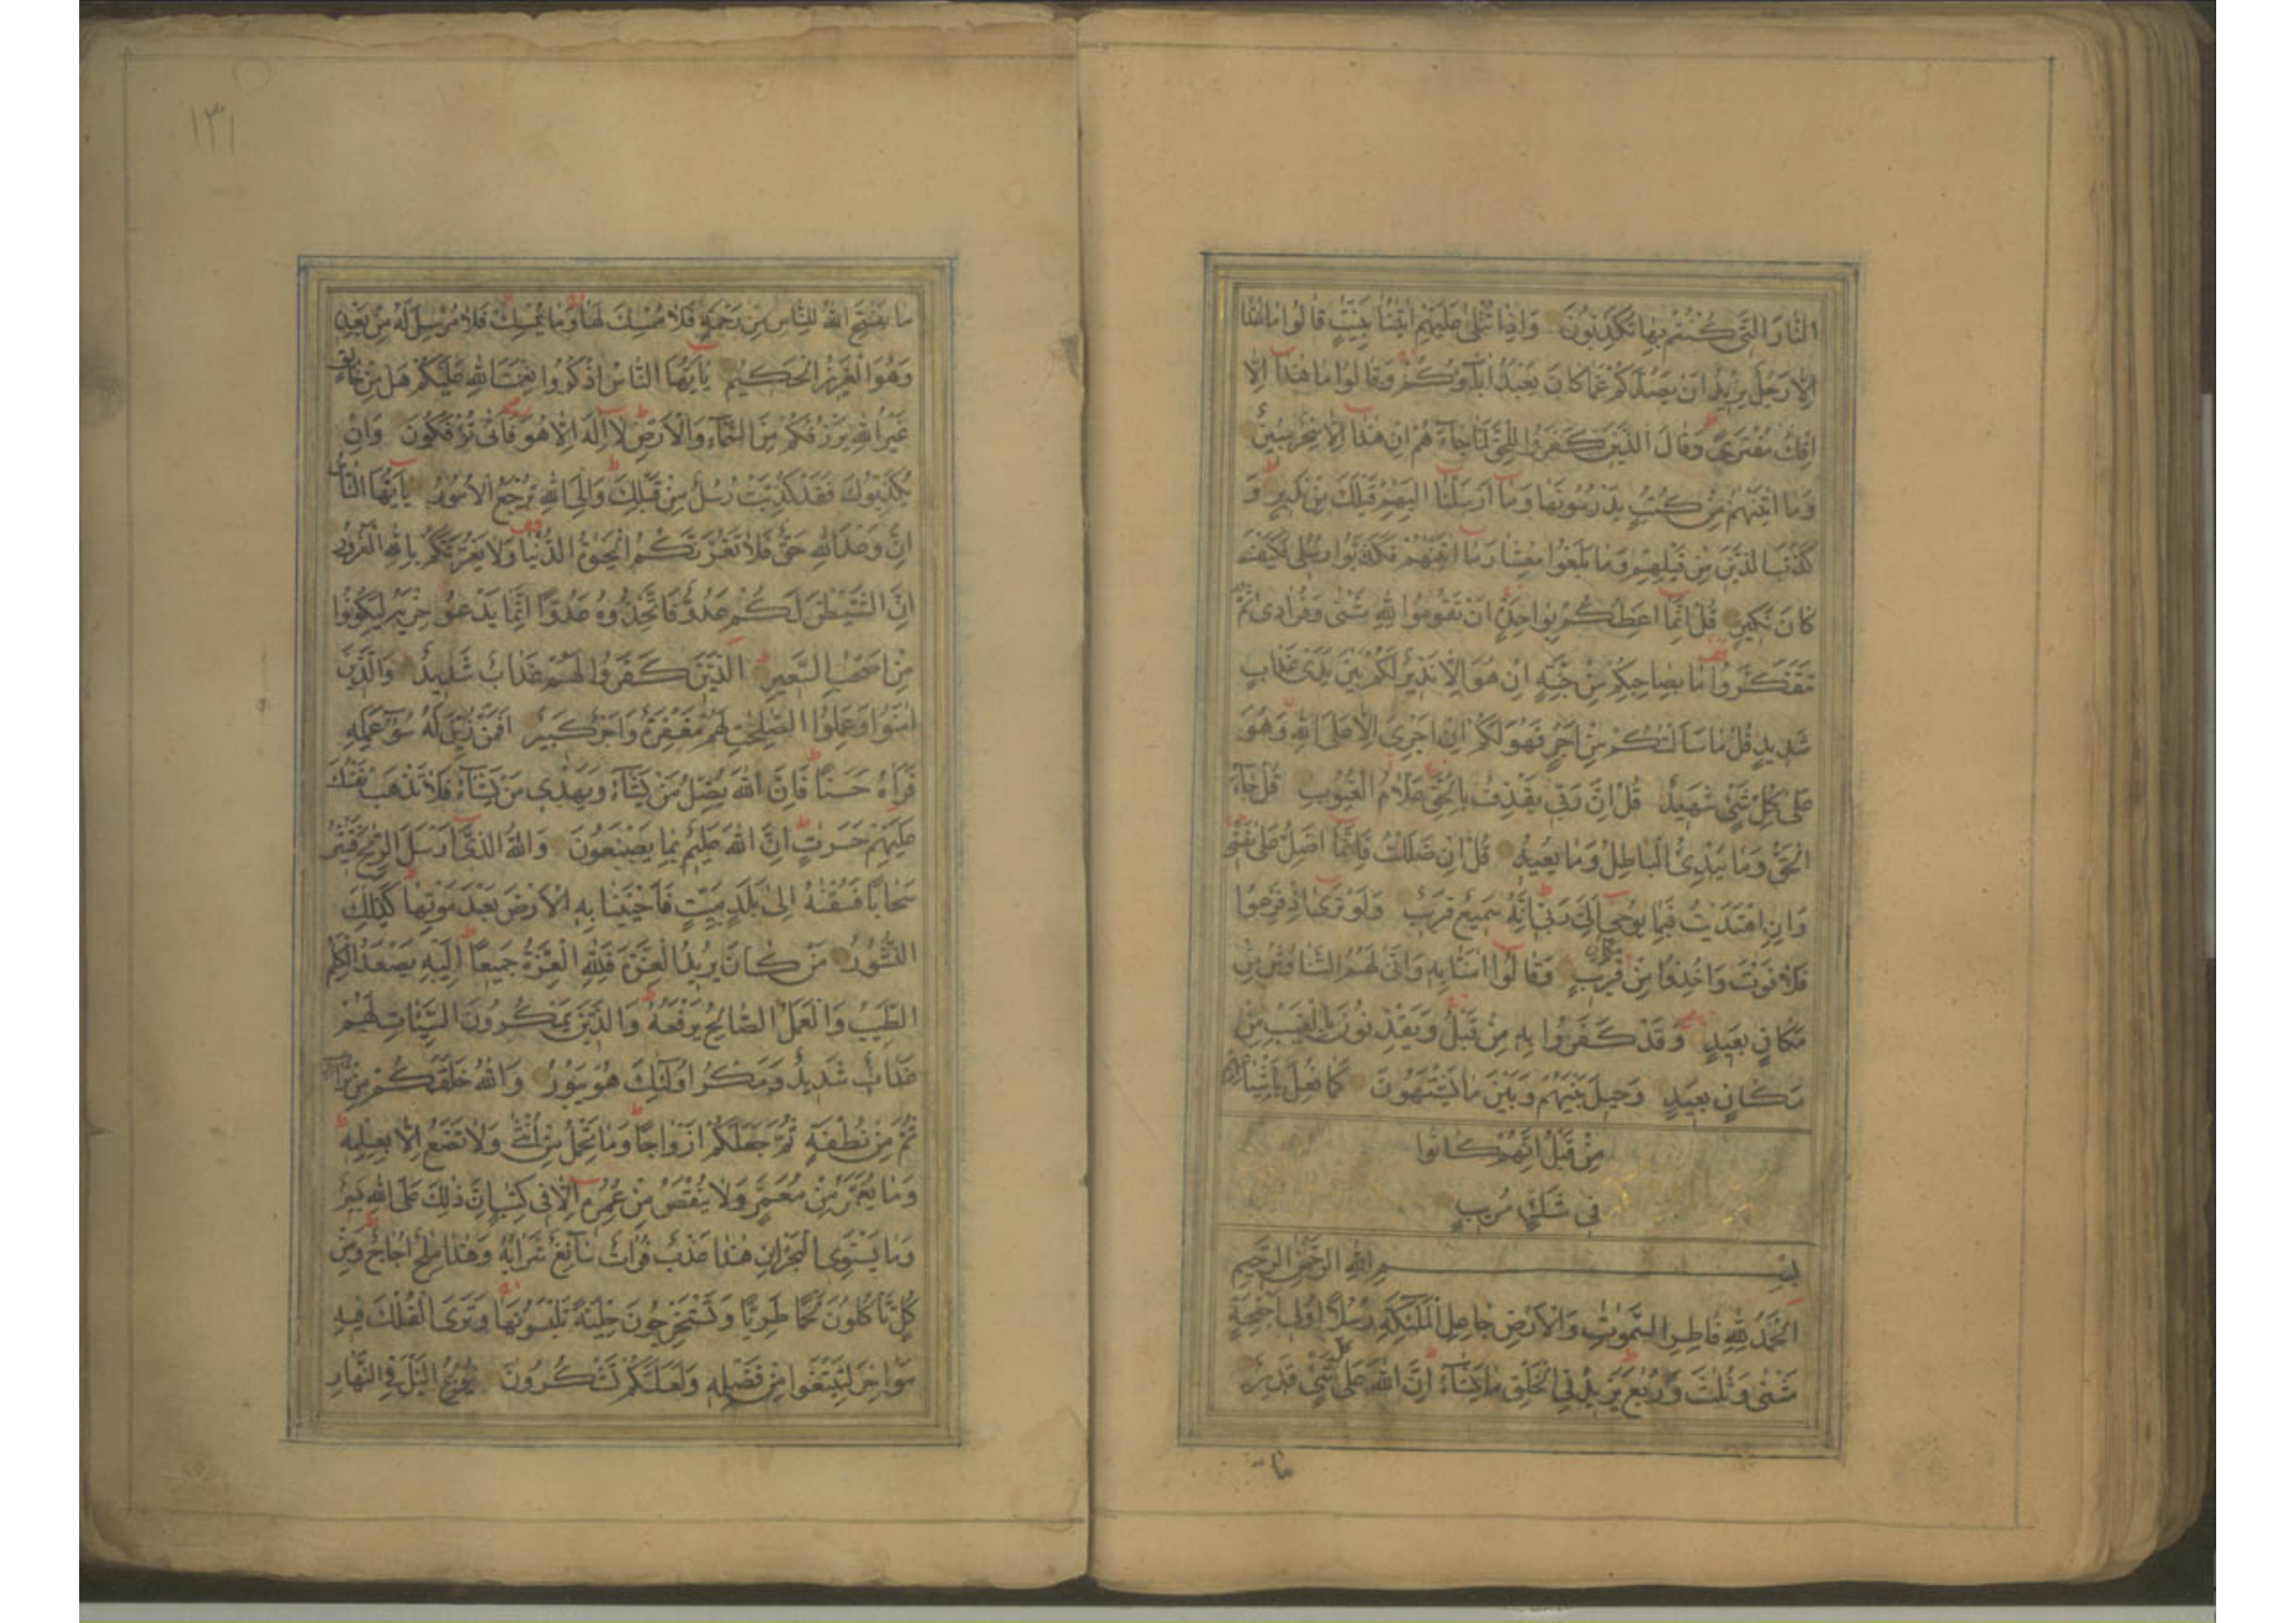 النَّارِ الَّتِي كُنْتُمْ بِهَا تُكَذِّبُونَ وَإِذَا تُتْلَىٰ عَلَيْهِمْ اٰيٰتُنَا بَيِّنٰتٍ قَالُوا مَا هٰذَا
اِلَّا رَجُلٌ يُرِيدُ اَنْ يَصُدَّكُمْ عَمَّا كَانَ يَعْبُدُ اٰبَآؤُكُمْ وَقَالُوا مَا هٰذَآ اِلَّا
اِفْكٌ مُفْتَرًى وَقَالَ الَّذِينَ كَفَرُوا لِلْحَقِّ لَمَّا جَآءَهُمْ اِنْ هٰذَآ اِلَّا سِحْرٌ مُبِينٌ
وَمَا اٰتَيْنٰهُمْ مِنْ كُتُبٍ يَدْرُسُونَهَا وَمَآ اَرْسَلْنَآ اِلَيْهِمْ قَبْلَكَ مِنْ نَذِيرٍ وَ
كَذَّبَ الَّذِينَ مِنْ قَبْلِهِمْ وَمَا بَلَغُوا مِعْشَارَ مَآ اٰتَيْنٰهُمْ فَكَذَّبُوا رُسُلِي فَكَيْفَ
كَانَ نَكِيرِ قُلْ اِنَّمَآ اَعِظُكُمْ بِوَاحِدَةٍ اَنْ تَقُومُوا لِلّٰهِ مَثْنٰى وَفُرَادٰى ثُمَّ
تَتَفَكَّرُوا مَا بِصَاحِبِكُمْ مِنْ جِنَّةٍ اِنْ هُوَ اِلَّا نَذِيرٌ لَكُمْ بَيْنَ يَدَيْ عَذَابٍ
شَدِيدٍ قُلْ مَا سَاَلْتُكُمْ مِنْ اَجْرٍ فَهُوَ لَكُمْ اِنْ اَجْرِيَ اِلَّا عَلَى اللّٰهِ وَهُوَ
عَلٰى كُلِّ شَيْءٍ شَهِيدٌ قُلْ اِنَّ رَبِّي يَقْذِفُ بِالْحَقِّ عَلَّامُ الْغُيُوبِ قُلْ جَآءَ
الْحَقُّ وَمَا يُبْدِئُ الْبَاطِلُ وَمَا يُعِيدُ قُلْ اِنْ ضَلَلْتُ فَاِنَّمَآ اَضِلُّ عَلٰى نَفْسِي
وَاِنِ اهْتَدَيْتُ فَبِمَا يُوحِيٓ اِلَيَّ رَبِّي اِنَّهُ سَمِيعٌ قَرِيبٌ وَلَوْ تَرٰىٓ اِذْ فَزِعُوا
فَلَا فَوْتَ وَاُخِذُوا مِنْ مَكَانٍ قَرِيبٍ وَقَالُوٓا اٰمَنَّا بِهِ وَاَنّٰى لَهُمُ التَّنَاوُشُ مِنْ
مَكَانٍ بَعِيدٍ وَقَدْ كَفَرُوا بِهِ مِنْ قَبْلُ وَيَقْذِفُونَ بِالْغَيْبِ مِنْ
مَكَانٍ بَعِيدٍ وَحِيلَ بَيْنَهُمْ وَبَيْنَ مَا يَشْتَهُونَ كَمَا فُعِلَ بِاَشْيَاعِهِمْ
مِنْ قَبْلُ اِنَّهُمْ كَانُوا
فِي شَكٍّ مُرِيبٍ
بِسْمِ اللّٰهِ الرَّحْمٰنِ الرَّحِيمِ
اَلْحَمْدُ لِلّٰهِ فَاطِرِ السَّمٰوٰتِ وَالْاَرْضِ جَاعِلِ الْمَلٰٓئِكَةِ رُسُلًا اُولِيٓ اَجْنِحَةٍ
مَثْنٰى وَثُلٰثَ وَرُبٰعَ يَزِيدُ فِي الْخَلْقِ مَا يَشَآءُ اِنَّ اللّٰهَ عَلٰى كُلِّ شَيْءٍ قَدِيرٌ
ما
١٣١
مَا يَفْتَحِ اللّٰهُ لِلنَّاسِ مِنْ رَحْمَةٍ فَلَا مُمْسِكَ لَهَا وَمَا يُمْسِكْ فَلَا مُرْسِلَ لَهُ مِنْ بَعْدِهِ
وَهُوَ الْعَزِيزُ الْحَكِيمُ يٰٓاَيُّهَا النَّاسُ اذْكُرُوا نِعْمَتَ اللّٰهِ عَلَيْكُمْ هَلْ مِنْ خَالِقٍ
غَيْرُ اللّٰهِ يَرْزُقُكُمْ مِنَ السَّمَآءِ وَالْاَرْضِ لَآ اِلٰهَ اِلَّا هُوَ فَاَنّٰى تُؤْفَكُونَ وَاِنْ
يُكَذِّبُوكَ فَقَدْ كُذِّبَتْ رُسُلٌ مِنْ قَبْلِكَ وَاِلَى اللّٰهِ تُرْجَعُ الْاُمُورُ يٰٓاَيُّهَا النَّاسُ
اِنَّ وَعْدَ اللّٰهِ حَقٌّ فَلَا تَغُرَّنَّكُمُ الْحَيٰوةُ الدُّنْيَا وَلَا يَغُرَّنَّكُمْ بِاللّٰهِ الْغَرُورُ
اِنَّ الشَّيْطٰنَ لَكُمْ عَدُوٌّ فَاتَّخِذُوهُ عَدُوًّا اِنَّمَا يَدْعُوا حِزْبَهُ لِيَكُونُوا
مِنْ اَصْحٰبِ السَّعِيرِ اَلَّذِينَ كَفَرُوا لَهُمْ عَذَابٌ شَدِيدٌ وَالَّذِينَ
اٰمَنُوا وَعَمِلُوا الصّٰلِحٰتِ لَهُمْ مَغْفِرَةٌ وَاَجْرٌ كَبِيرٌ اَفَمَنْ زُيِّنَ لَهُ سُوٓءُ عَمَلِهِ
فَرَاٰهُ حَسَنًا فَاِنَّ اللّٰهَ يُضِلُّ مَنْ يَشَآءُ وَيَهْدِي مَنْ يَشَآءُ فَلَا تَذْهَبْ نَفْسُكَ
عَلَيْهِمْ حَسَرٰتٍ اِنَّ اللّٰهَ عَلِيمٌ بِمَا يَصْنَعُونَ وَاللّٰهُ الَّذِيٓ اَرْسَلَ الرِّيٰحَ فَتُثِيرُ
سَحَابًا فَسُقْنٰهُ اِلٰى بَلَدٍ مَيِّتٍ فَاَحْيَيْنَا بِهِ الْاَرْضَ بَعْدَ مَوْتِهَا كَذٰلِكَ
النُّشُورُ مَنْ كَانَ يُرِيدُ الْعِزَّةَ فَلِلّٰهِ الْعِزَّةُ جَمِيعًا اِلَيْهِ يَصْعَدُ الْكَلِمُ
الطَّيِّبُ وَالْعَمَلُ الصَّالِحُ يَرْفَعُهُ وَالَّذِينَ يَمْكُرُونَ السَّيِّئَاتِ لَهُمْ
عَذَابٌ شَدِيدٌ وَمَكْرُ اُولٰٓئِكَ هُوَ يَبُورُ وَاللّٰهُ خَلَقَكُمْ مِنْ تُرَابٍ
ثُمَّ مِنْ نُطْفَةٍ ثُمَّ جَعَلَكُمْ اَزْوَاجًا وَمَا تَحْمِلُ مِنْ اُنْثٰى وَلَا تَضَعُ اِلَّا بِعِلْمِهِ
وَمَا يُعَمَّرُ مِنْ مُعَمَّرٍ وَلَا يُنْقَصُ مِنْ عُمُرِهِ اِلَّا فِي كِتٰبٍ اِنَّ ذٰلِكَ عَلَى اللّٰهِ يَسِيرٌ
وَمَا يَسْتَوِي الْبَحْرَانِ هٰذَا عَذْبٌ فُرَاتٌ سَآئِغٌ شَرَابُهُ وَهٰذَا مِلْحٌ اُجَاجٌ وَمِنْ
كُلٍّ تَاْكُلُونَ لَحْمًا طَرِيًّا وَتَسْتَخْرِجُونَ حِلْيَةً تَلْبَسُونَهَا وَتَرَى الْفُلْكَ فِيهِ
مَوَاخِرَ لِتَبْتَغُوا مِنْ فَضْلِهِ وَلَعَلَّكُمْ تَشْكُرُونَ يُولِجُ الَّيْلَ فِي النَّهَارِ